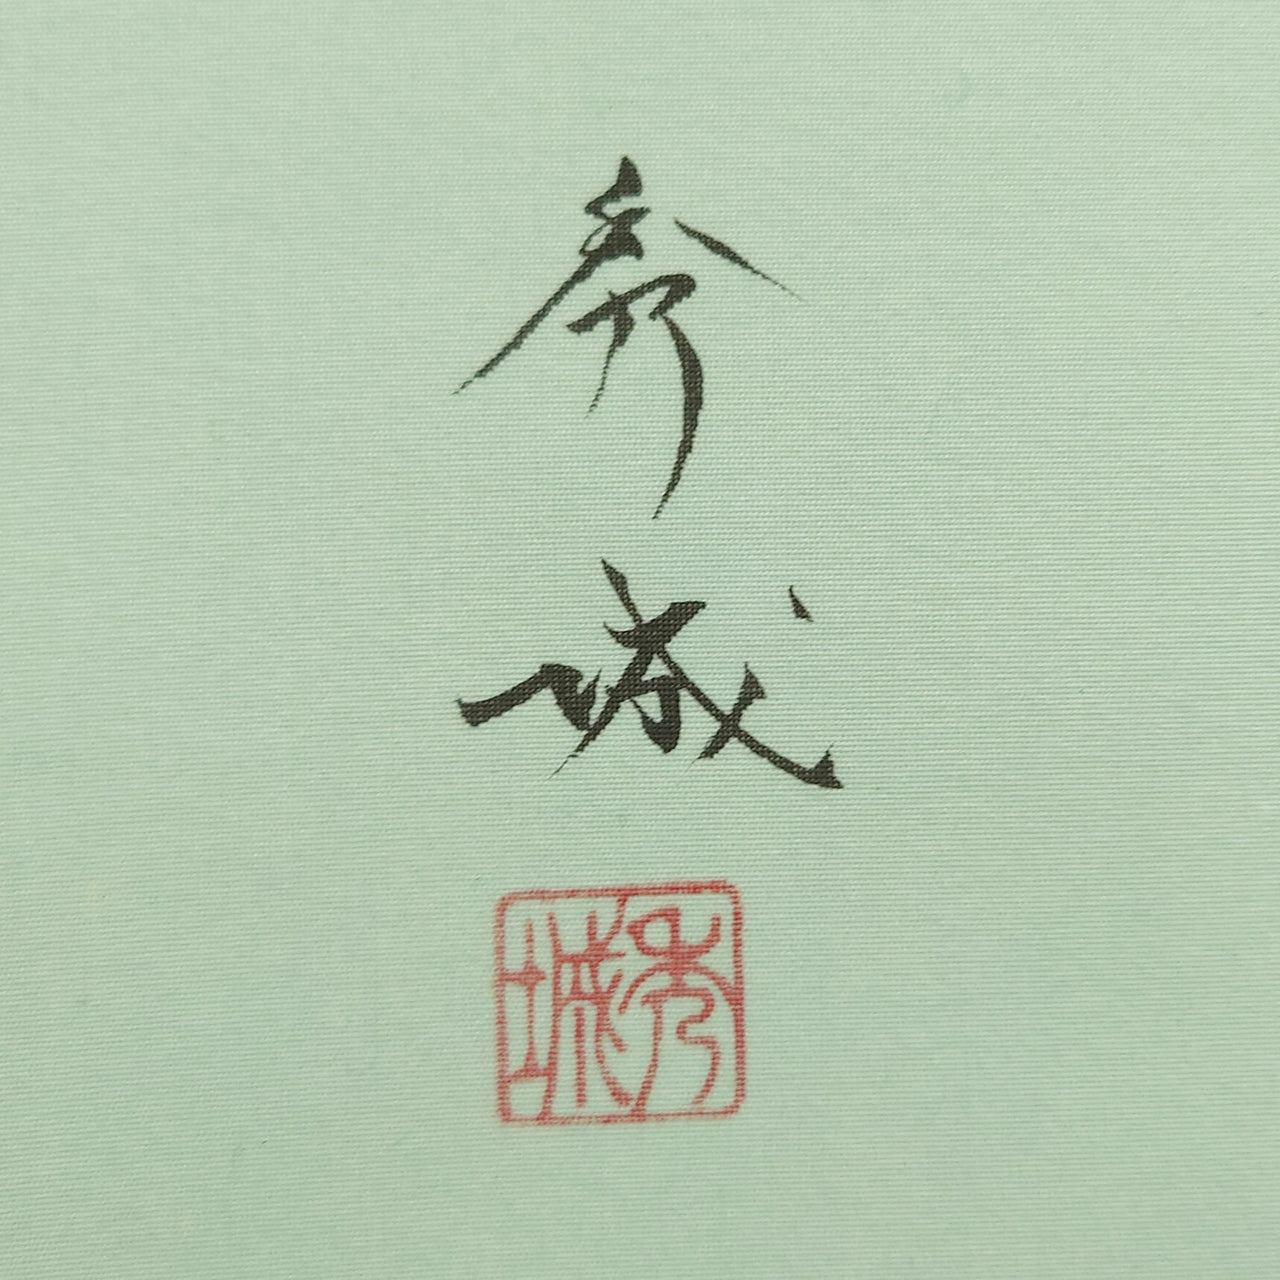 秀城
秀城